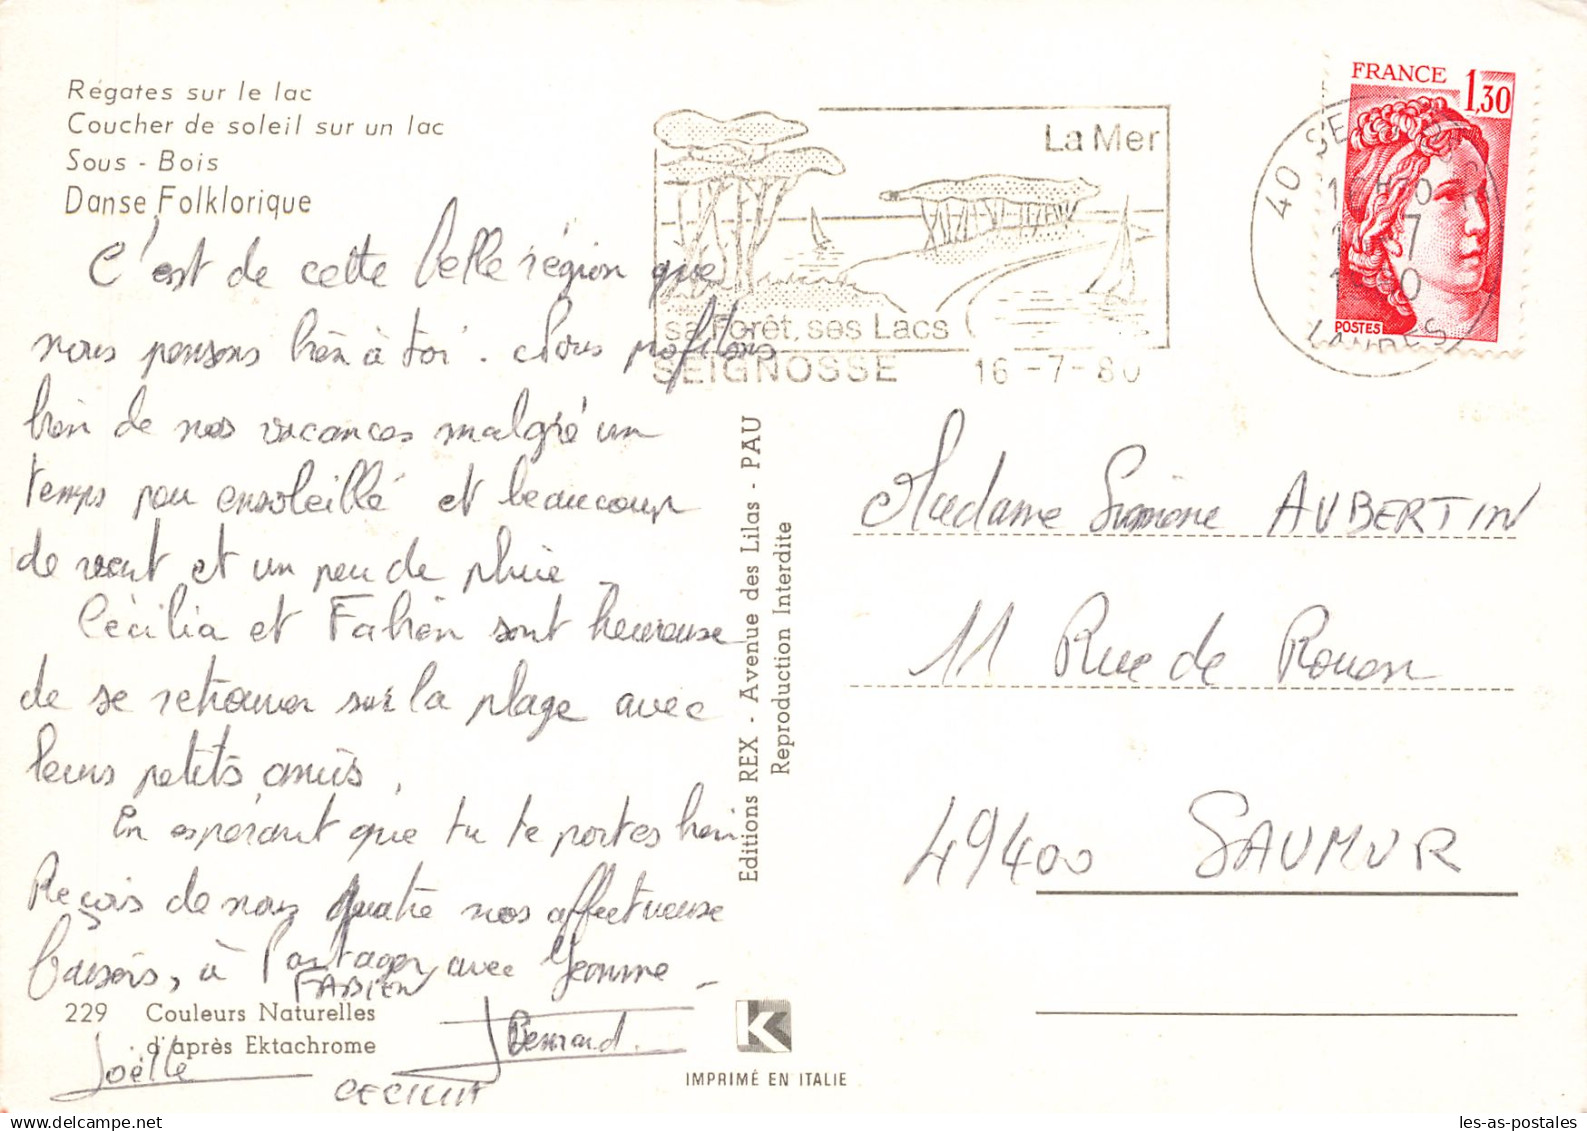 Régates sur le lac
Coucher de soleil sur un lac
Sous - Bois
Danse Folklorique
C'est de cette belle région que
nous pensons bien à toi. Nous profitons
bien de nos vacances malgré un
temps peu ensoleillé et beaucoup
de vent et un peu de pluie.
Cécilia et Fabien sont heureuse
de se retrouver sur la plage avec
leurs petits amis.
En espérant que tu te portes bien
Reçois de nous quatre nos affectueuse
baisers, à partager avec Jeanne -
FABIEN
229 Couleurs Naturelles
d'après Ektachrome
Joëlle
Bernard
CECILIA
Editions REX - Avenue des Lilas - PAU
Reproduction Interdite
IMPRIMÉ EN ITALIE
La Mer
sa Forêt, ses Lacs
SEIGNOSSE 16-7-80
FRANCE 1,30
POSTES
40
LANDES
Madame Simone AUBERTIN
11 Rue de Rouen
49400 SAUMUR
les-as-postales